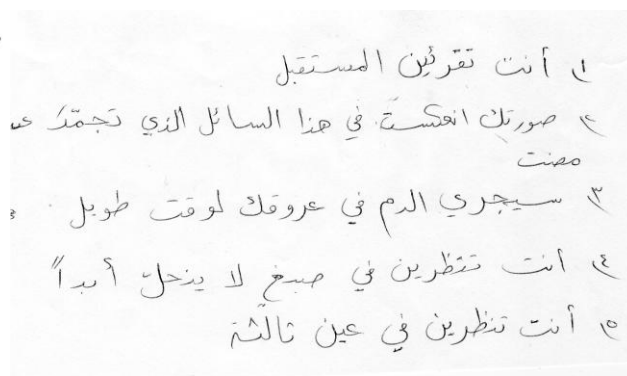 ١) أنت تقرئين المستقبل
٢) صورتك انعكست في هذا السائل الذي تجمّدَ
مضت
٣) سيجري الدم في عروقك لوقت طويل
٤) أنت تنظرين في صبغ لا ينحلّ أبداً
٥) أنت تنظرين في عين ثالثة